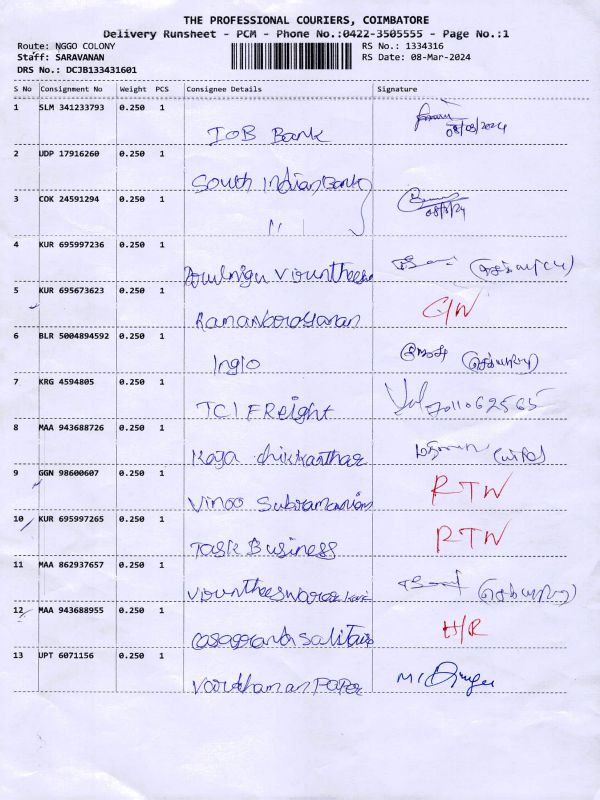 THE PROFESSIONAL COURIERS, COIMBATORE
Delivery Runsheet - PCM - Phone No.:0422-3505555 - Page No.:1
Route: NGGO COLONY RS No.: 1334316
Staff: SARAVANAN RS Date: 08-Mar-2024
DRS No.: DCJB133431601
S No Consignment No Weight PCS Consignee Details Signature
1 SLM 341233793 0.250 1
IOB Bank 08/03/2024
2 UDP 17916260 0.250 1
South Indian Bank
3 COK 24591294 0.250 1
08/3/24
4 KUR 695997236 0.250 1
5 KUR 695673623 0.250 1
C/W
6 BLR 5004894592 0.250 1
7 KRG 4594805 0.250 1
TCI FReight 7011062565
8 MAA 943688726 0.250 1
9 GGN 98600607 0.250 1
Vinoo Subramaniam RTW
10 KUR 695997265 0.250 1
Task Business RTW
11 MAA 862937657 0.250 1
12 MAA 943688955 0.250 1
H/R
13 UPT 6071156 0.250 1
Vardhaman PaPer